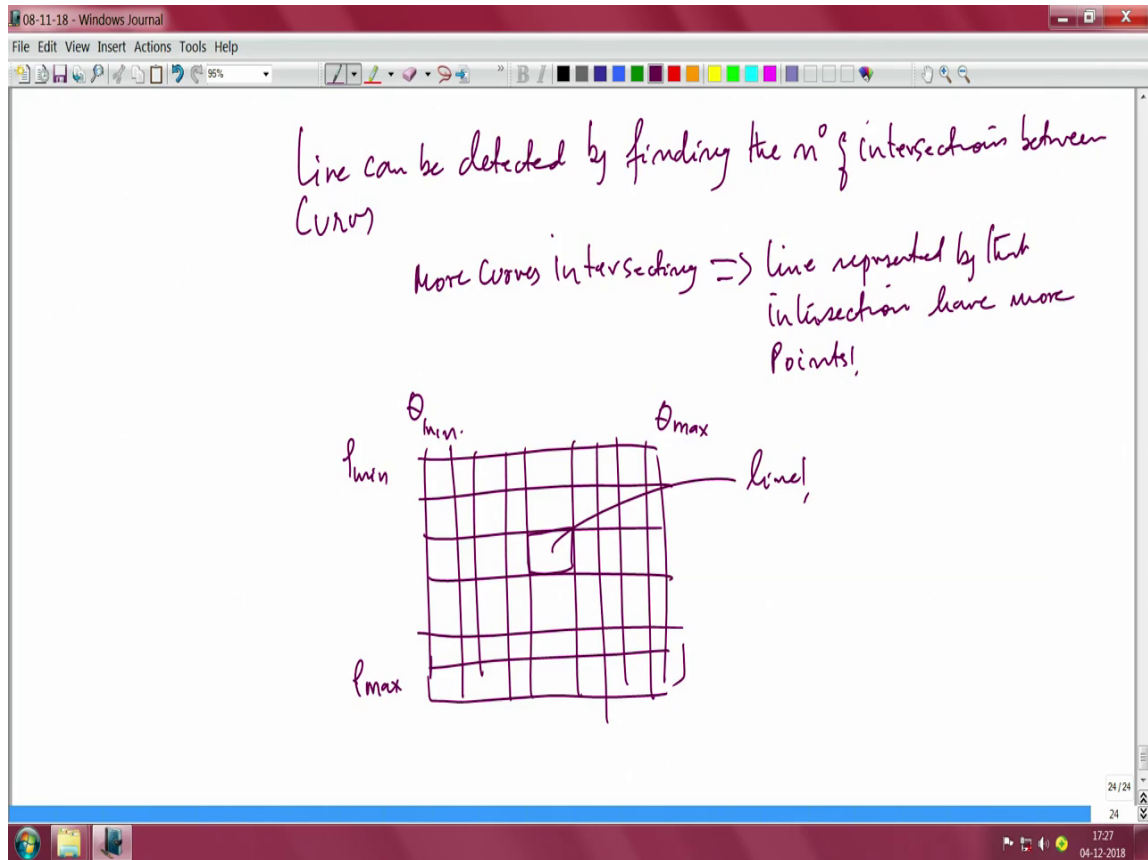 08-11-18 - Windows Journal
File Edit View Insert Actions Tools Help
95%
B I
Line can be detected by finding the nº of intersections between
Curves
More Curves intersecting => line represented by that
intersection have more
Points!
θmin. θmax
ρmin
line!
ρmax
24/24
24
17:27
04-12-2018